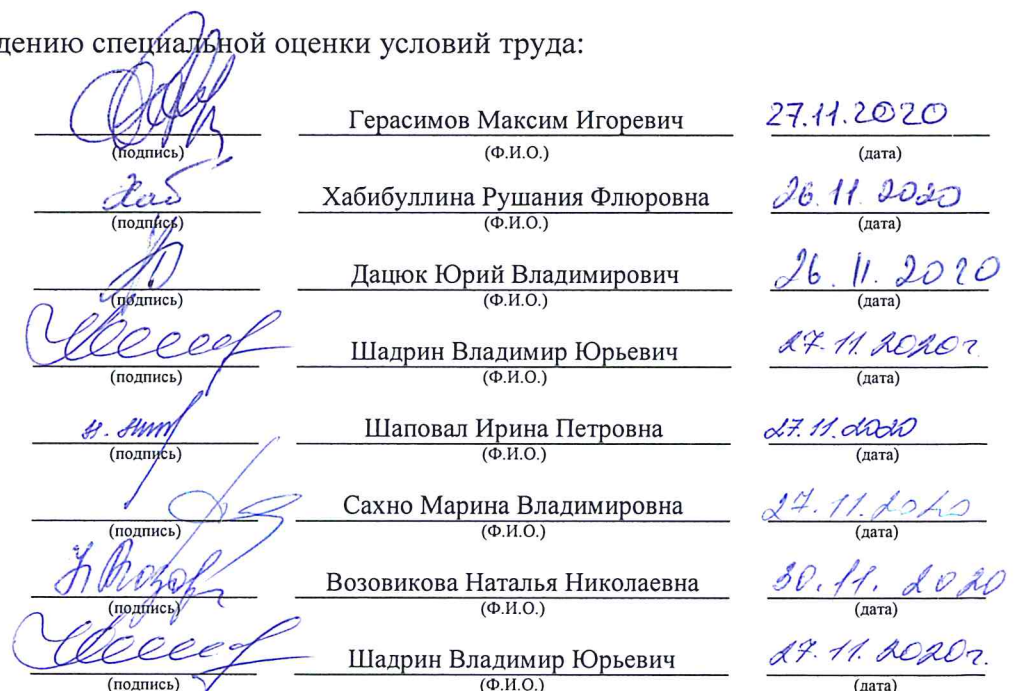 дению специальной оценки условий труда:
Герасимов Максим Игоревич 27.11.2020
(подпись) (Ф.И.О.) (дата)
Хаб Хабибуллина Рушания Флюровна 26.11.2020
(подпись) (Ф.И.О.) (дата)
Дацюк Юрий Владимирович 26.11.2020
(подпись) (Ф.И.О.) (дата)
Шадрин Владимир Юрьевич 27.11.2020г.
(подпись) (Ф.И.О.) (дата)
Шаповал Ирина Петровна 27.11.2020
(подпись) (Ф.И.О.) (дата)
Сахно Марина Владимировна 27.11.2020
(подпись) (Ф.И.О.) (дата)
Возовикова Наталья Николаевна 30.11.2020
(подпись) (Ф.И.О.) (дата)
Шадрин Владимир Юрьевич 27.11.2020г.
(подпись) (Ф.И.О.) (дата)